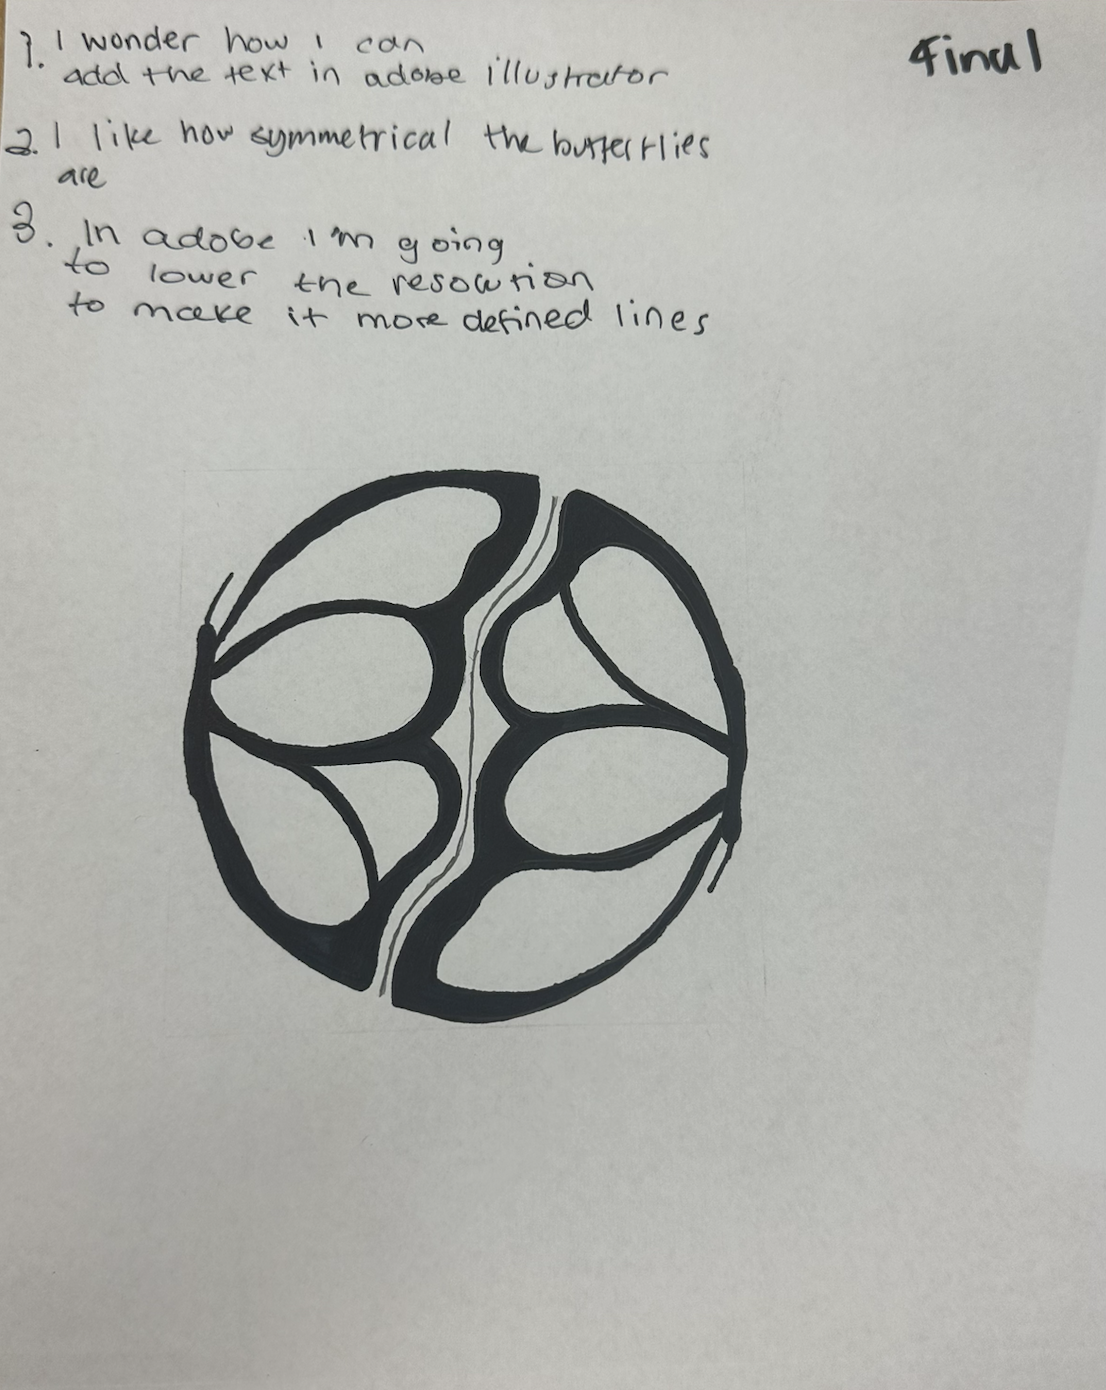 1. I wonder how i can
add the text in adobe illustrator
Final
2. I like how symmetrical the butterflies
are
3. In adobe I'm going
to lower the resolution
to make it more defined lines